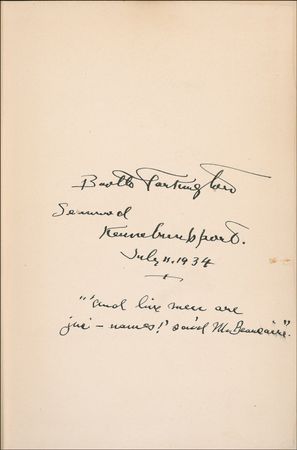 Booth Tarkington
Seawood
Kennebunkport.
July 11. 1934
"'and six men are
jus' – names!' said M. Beaucaire".